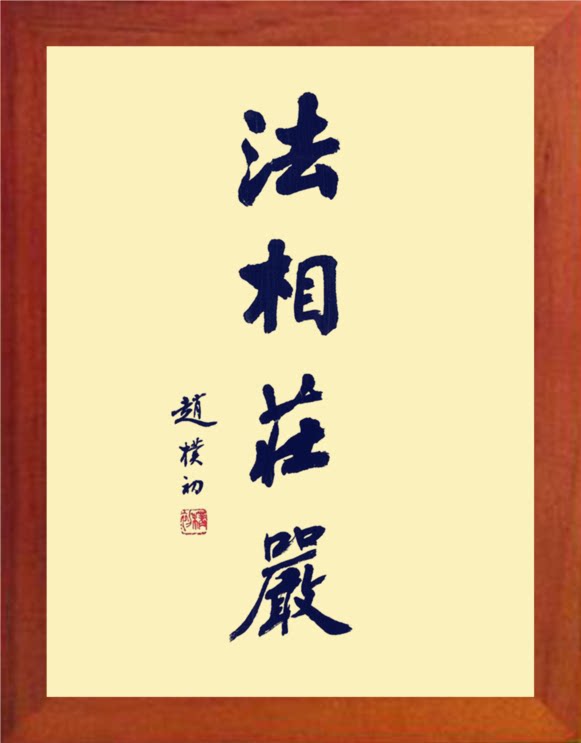 法相莊嚴
趙樸初